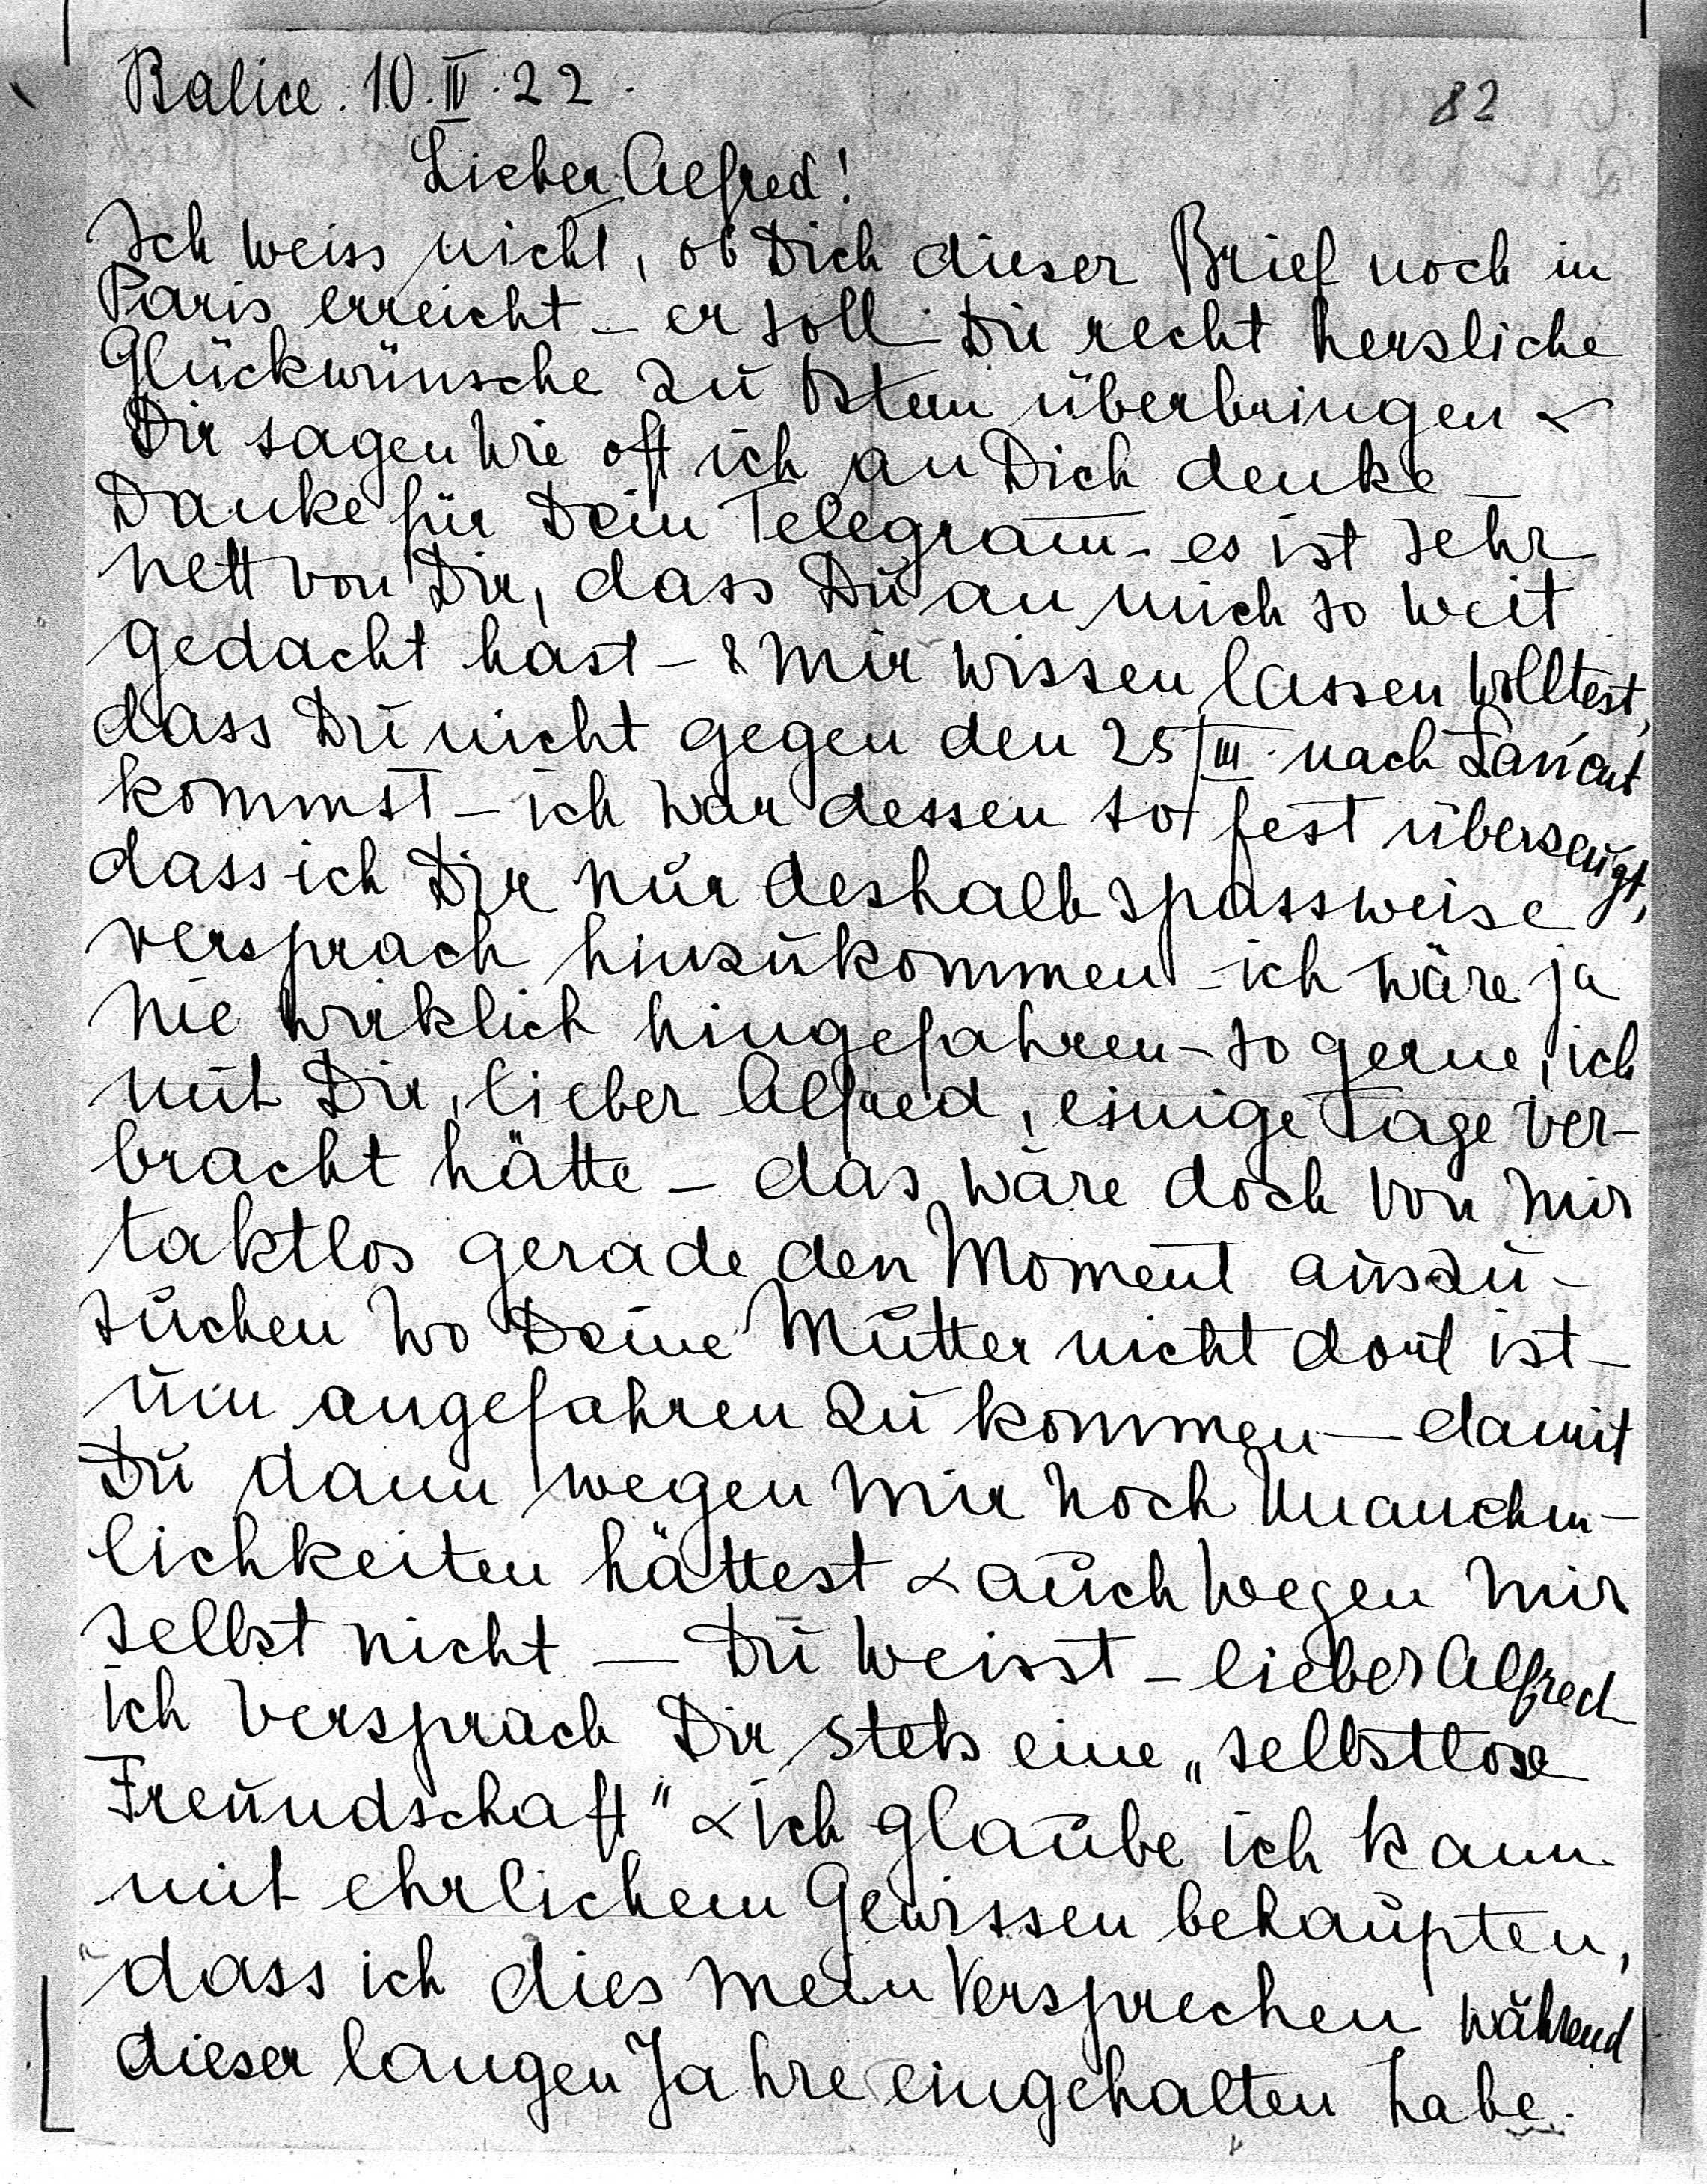 Balice. 10.IV.22.
82
Lieber Alfred!
Ich weiss nicht, ob Dich dieser Brief noch in
Paris erreicht – er soll Dir recht herzliche
Glückwünsche zu Ostern überbringen &
Dir sagen wie oft ich an Dich denke –
Danke für Dein Telegram – es ist sehr
nett von Dir, dass Du an mich so weit
gedacht hast – & mir wissen lassen wolltest,
dass Du nicht gegen den 25/III. nach Łańcut
kommst – ich war dessen so fest überzeugt,
dass ich Dir nur deshalb spassweise
versprach hinzukommen – ich wäre ja
nie wirklich hingefahren – so gerne, ich
mit Dir, lieber Alfred, einige Tage ver-
bracht hätte – das wäre doch von mir
taktlos gerade den Moment auszu-
suchen wo Deine Mutter nicht dort ist –
um angefahren zu kommen – damit
Du dann wegen mir noch Unanehm-
lichkeiten hättest & auch wegen mir
selbst nicht – Du weisst – lieber Alfred
ich versprach Dir stets eine „selbstlose
Freundschaft" & ich glaube ich kann
mit ehrlichem Gewissen behaupten,
dass ich dies mein Versprechen während
dieser langen Jahre eingehalten habe.